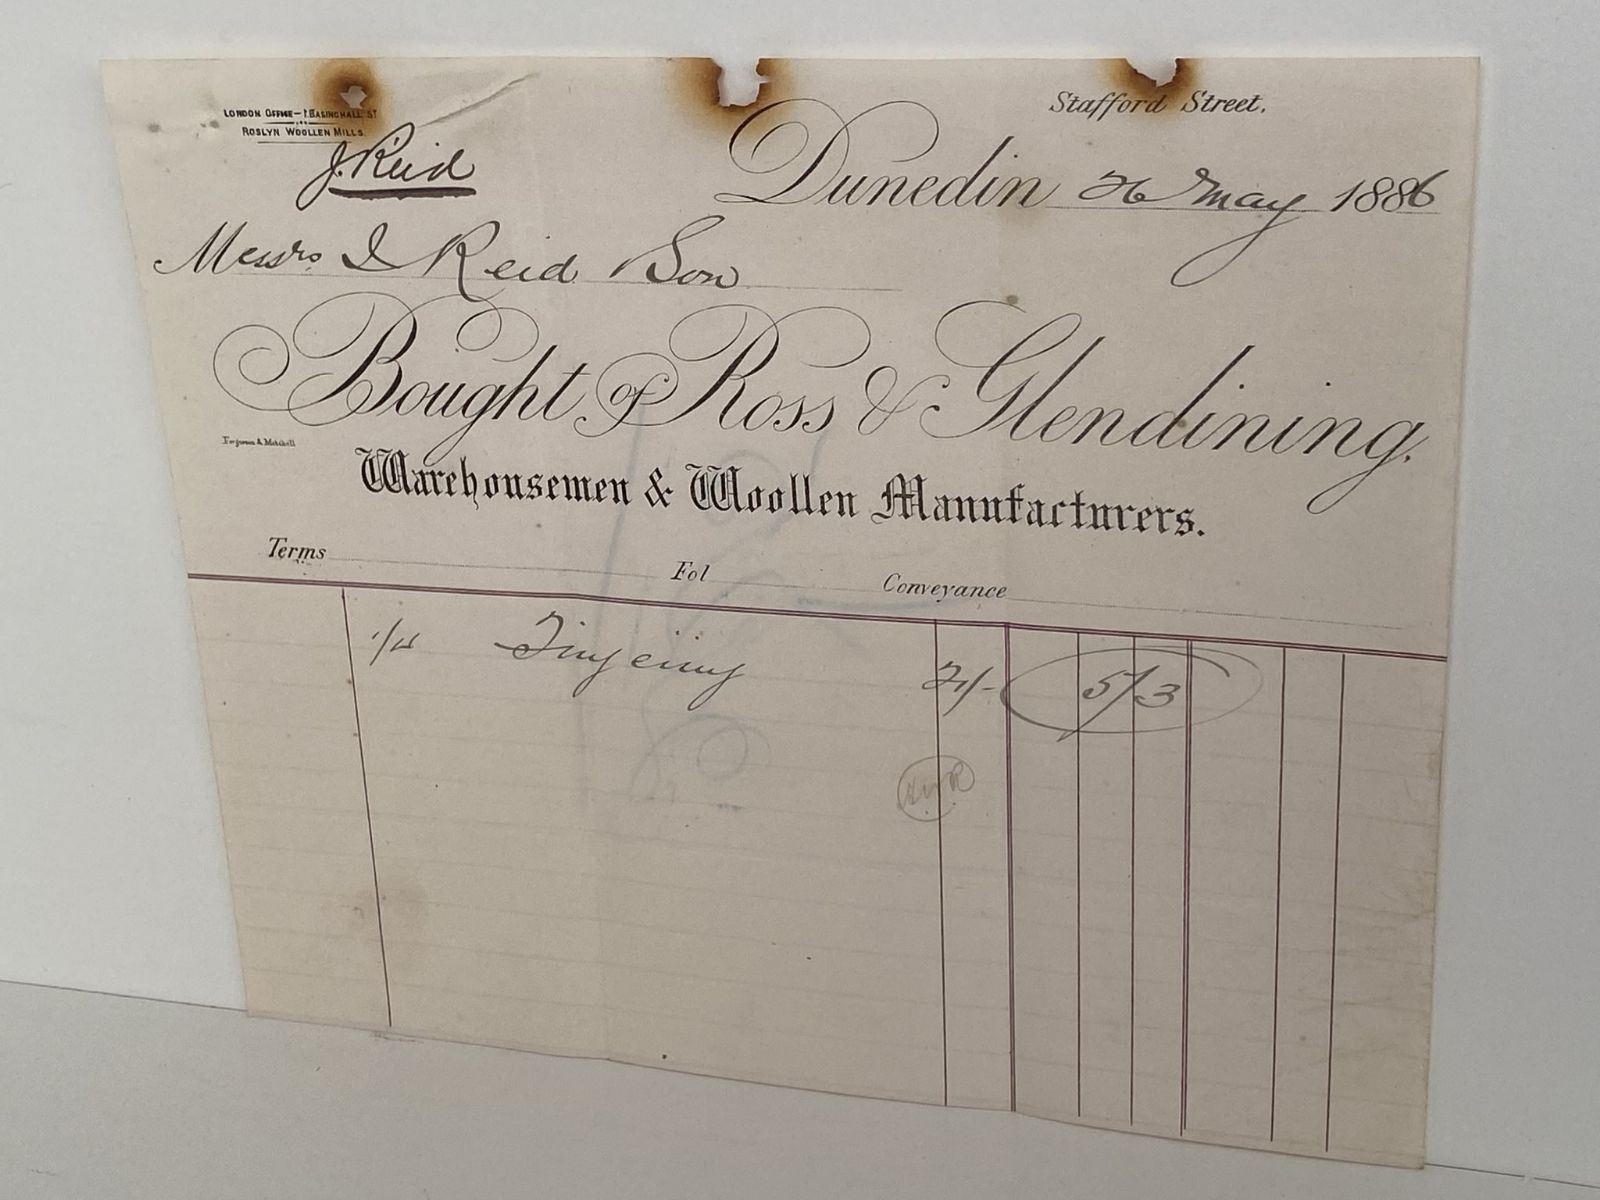 LONDON OFFICE – 1. BASINGHALL ST
ROSLYN WOOLLEN MILLS.
J. Reid
Stafford Street.
Dunedin 26 May 1886
Messrs J Reid Son
Bought of Ross & Glendining.
Ferguson & Mitchell
Warehousemen & Woollen Manufacturers.
Terms Fol Conveyance
21/- 5/3